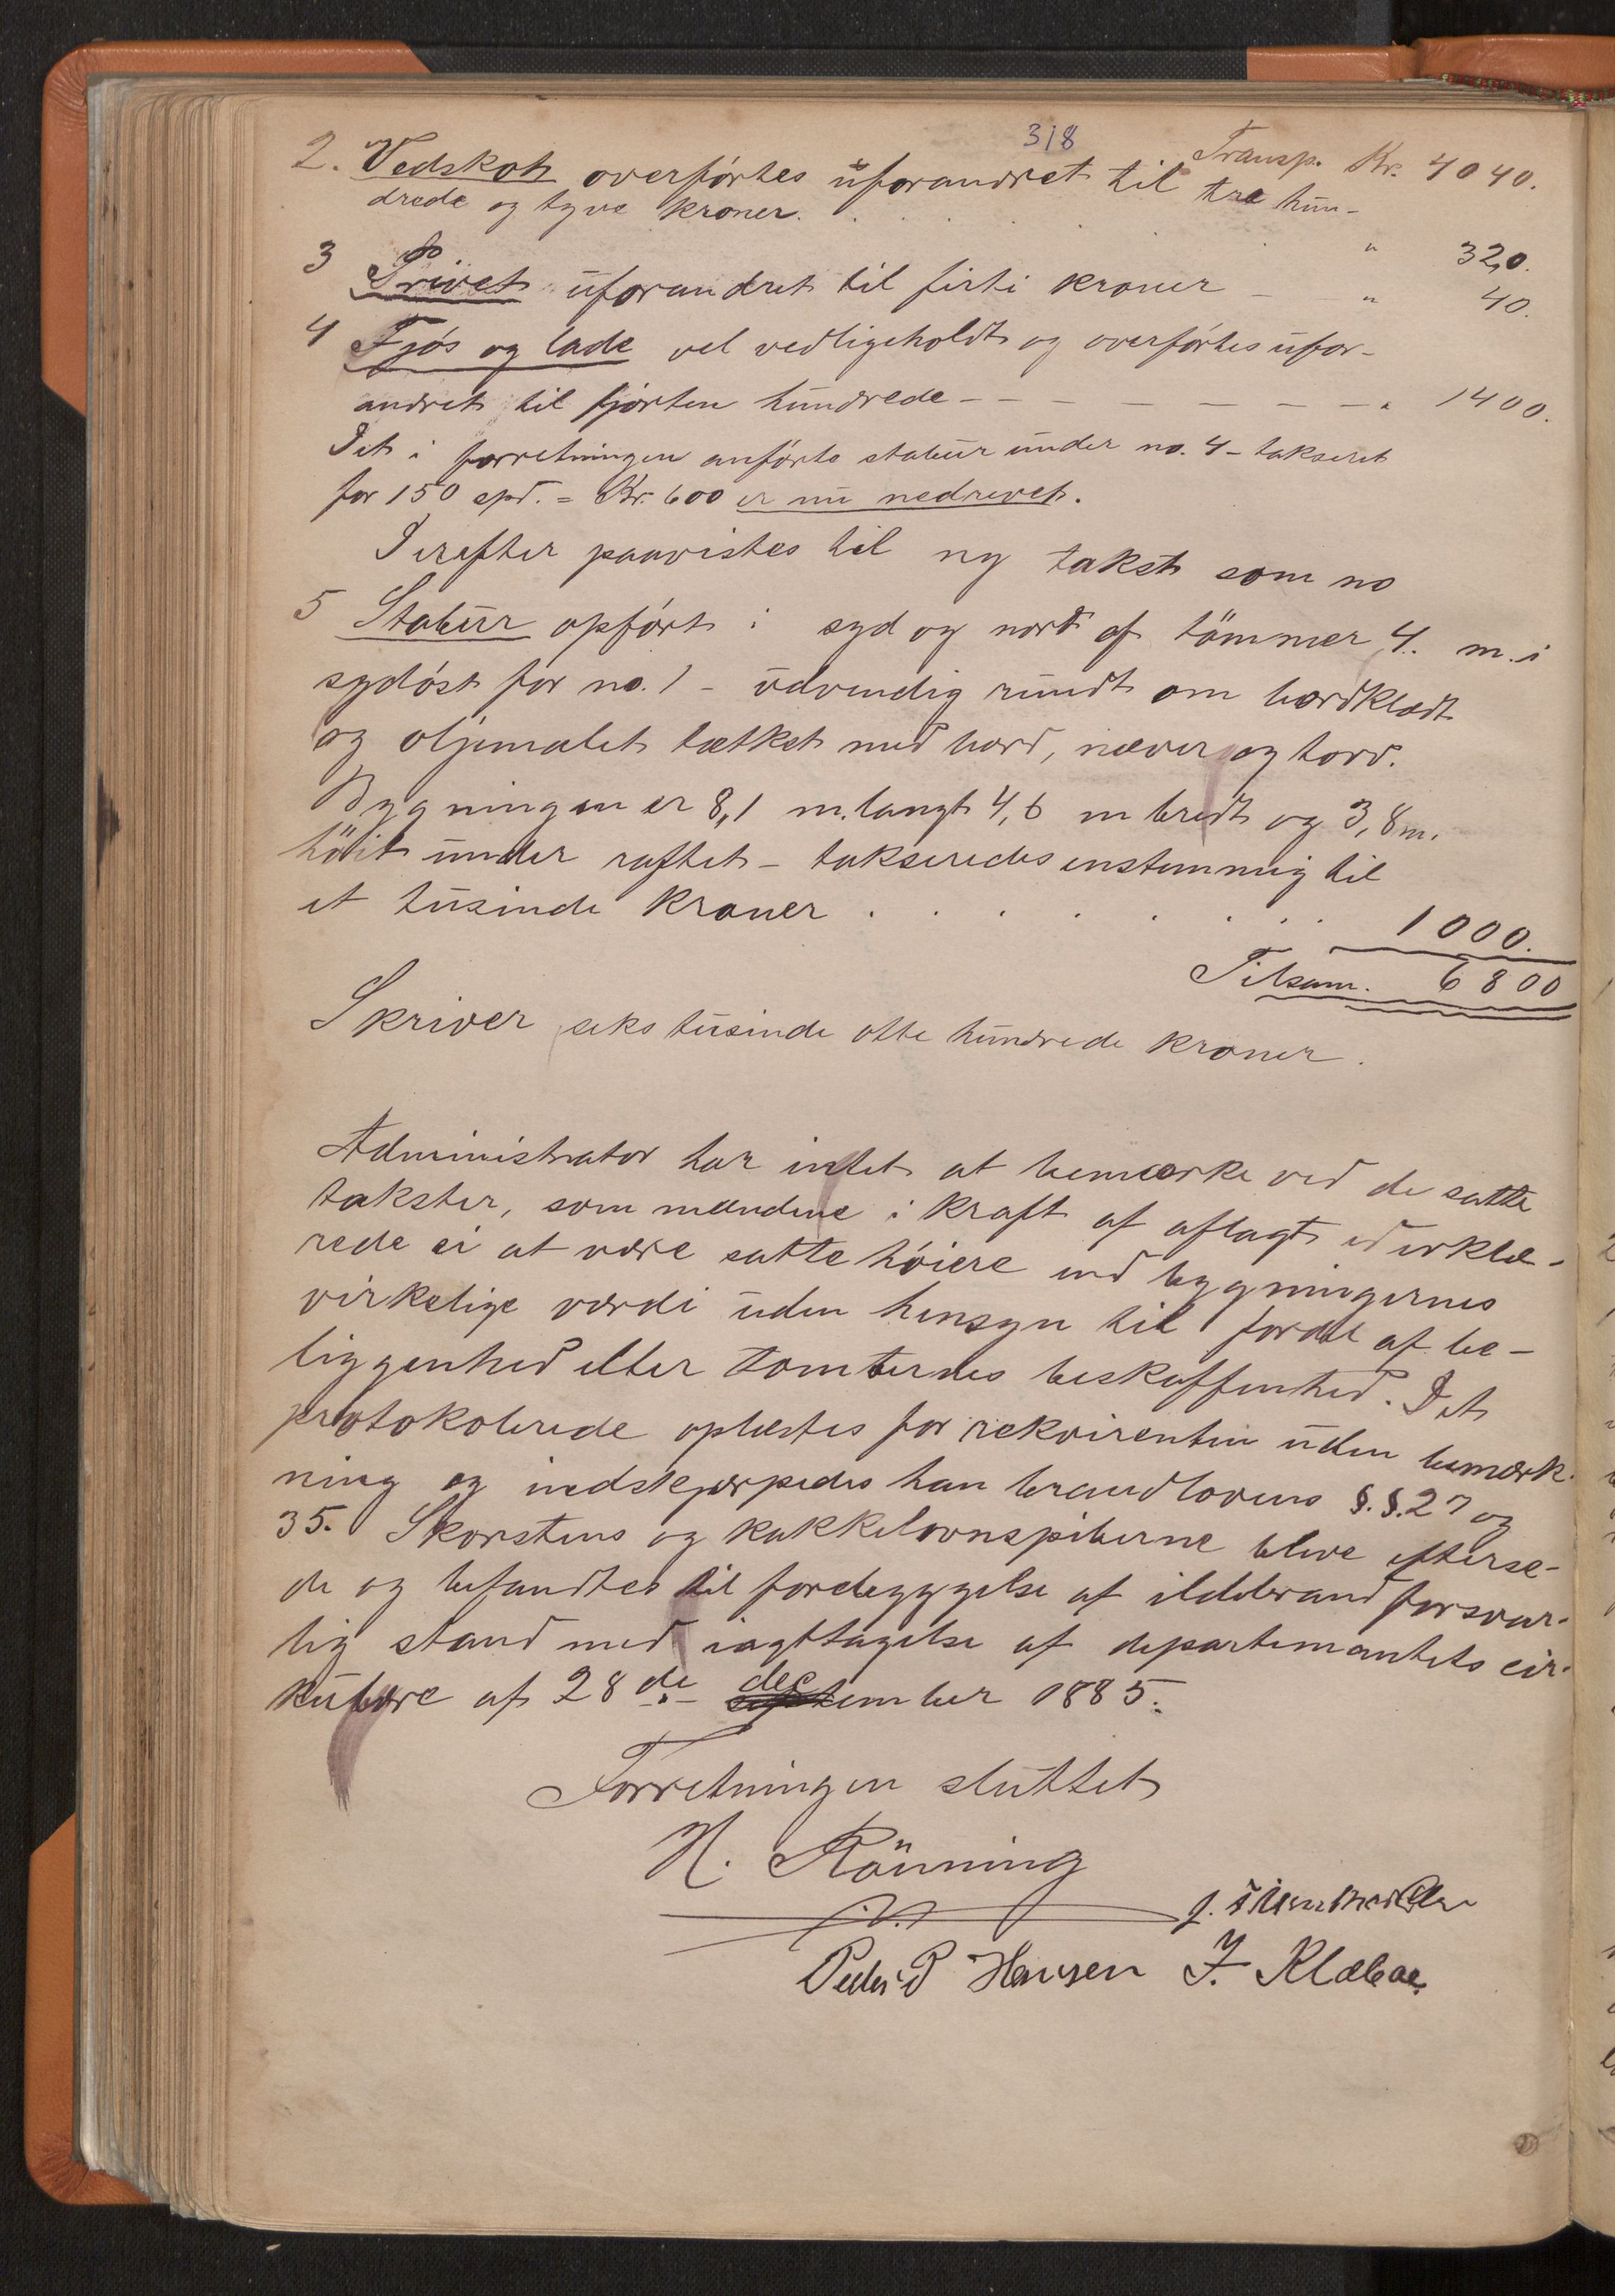 318
Transp. Kr. 4040.
2. Vedskot overførtes uforandret til tre hun-
drede og tyve kroner. . . . . . " 320.
3 Privet uforandret til firti kroner - " 40.
4 Fjøs og lade vel vedligeholdt og overførtes ufor-
andret til fjorten hundrede - - - - - - - " 1400.
Det i forretningen anførte stabur under no. 4 - takseret
for 150 spd. = Kr. 600 er nu nedrevet.
Derefter paavistes til ny takst som no
5 Stabur opført i syd og nord af tömmer 4. m. i
sydøst for no. 1 - udvendig rundt om bordklædt
og oljemalet tækket med bord, næver og torv.
Bygningen er 8,1 m. langt 4,6 m bredt og 3,8 m.
höit under raftet - takseredes enstemmig til
et tusinde kroner . . . . . . . . 1000.
Tilsam. 6800
Skriver seks tusinde otte hundrede kroner.
Administrator har intet at bemærke ved de satte
takster, som mændene i kraft af aflagt ed erklæ-
rede ei at være satte høiere end bygningernes
virkelige værdi uden hensyn til fordel af be-
liggenhed eller tomternes beskaffenhed. Det
protokolerede oplæstes for rekvirenten uden bemærk-
ning og indskjærpedes han brandlovens §.§. 27 og
35. Skorstens og kakkelovnspiberne bleve efterse-
de og befandtes til forebyggelse af ildebrand forsvar-
lig stand med iagttagelse af departementets cir-
kulære af 28de september dec 1885.
Forretningen sluttet
H. Rönning
Peder P Hansen J. Klæboe